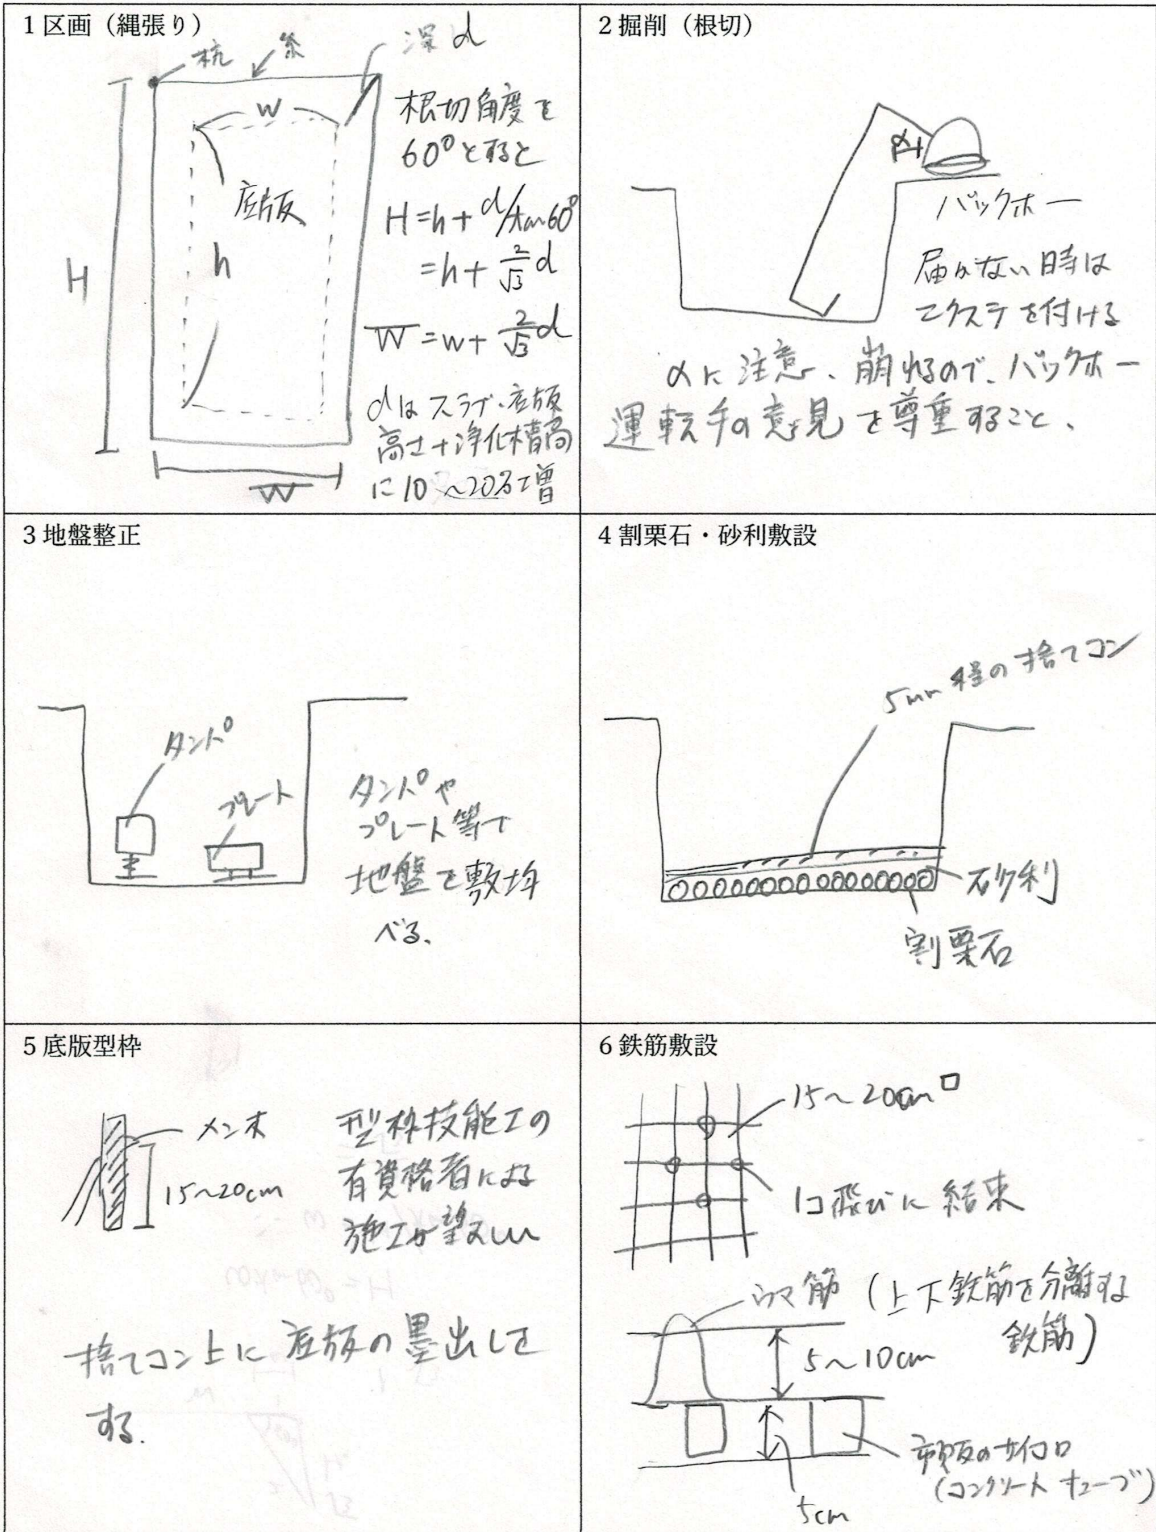 1 区画（縄張り）
杭
糸
深 d
w
底版
h
H
W
根切角度を
60°とすると
H=h+d/tan60°
=h+2/√3 d
W=w+2/√3 d
dはスラブ、底版
高さ+浄化槽高
に10~20%増
2 掘削（根切）
α
バックホー
届かない時は
エクステを付ける
αに注意、崩れるので、バックホー
運転手の意見を尊重すること、
3 地盤整正
タンパ
プレート
タンパや
プレート等で
地盤を敷均
べる.
4 割栗石・砂利敷設
5mm程の捨てコン
砂利
割栗石
5 底版型枠
メン木
15~20cm
型枠技能工の
有資格者による
施工が望ましい
捨てコン上に底版の墨出しを
する.
6 鉄筋敷設
15~20cm□
1コ飛びに結束
ウマ筋（上下鉄筋を分離する
鉄筋）
5~10cm
市販のサイコロ
（コンクリートキューブ）
5cm